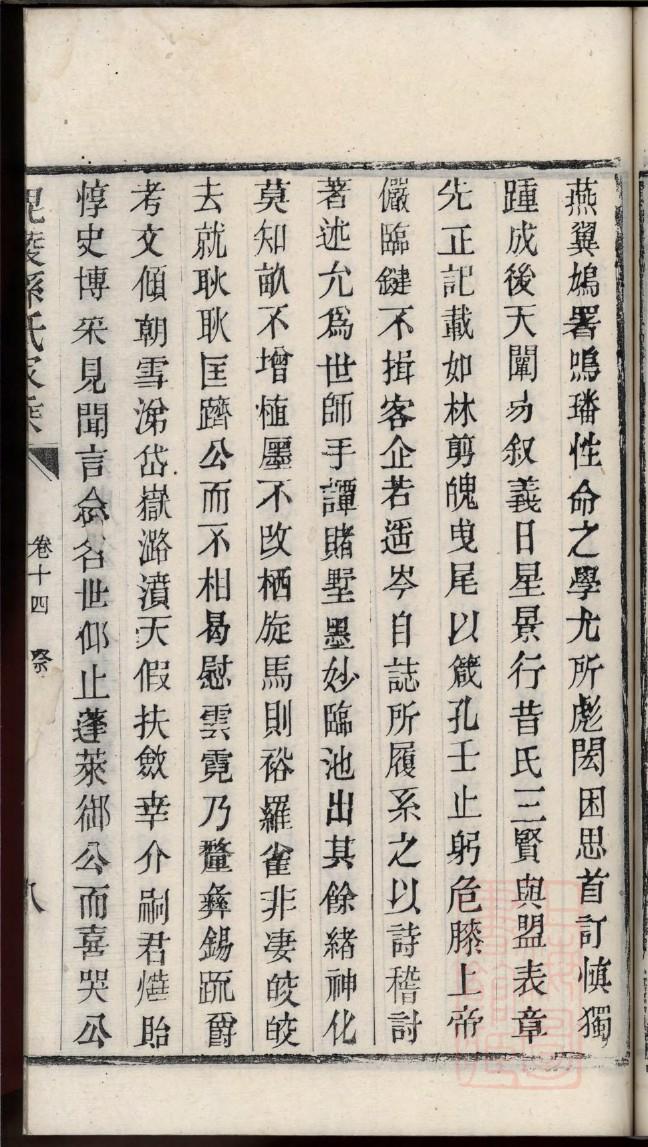 燕翼鳩署鳴璠性命之學尤所彪閎困思首訂慎獨
踵成後天闡易叙義日星景行昔氏三賢與盟表章
先正記載如林剪魄曳尾以箴孔壬止躬危膝上帝
儼臨鍵不揖客企若遥岑自誌所履系之以詩稽討
著述允爲世師手譚賭墅墨妙臨池出其餘緒神化
莫知畝不增植廛不改栖旋馬則裕羅雀非凄皎皎
去就耿耿匡躋公而不相曷慰雲霓乃釐彝錫䟽爵
考文傾朝雪涕岱嶽潞濆天假扶斂幸介嗣君㷸貽
惇史博采見聞言念名世仰止蓬萊御公而喜哭公
毘陵孫氏家乘
卷十四
祭
八